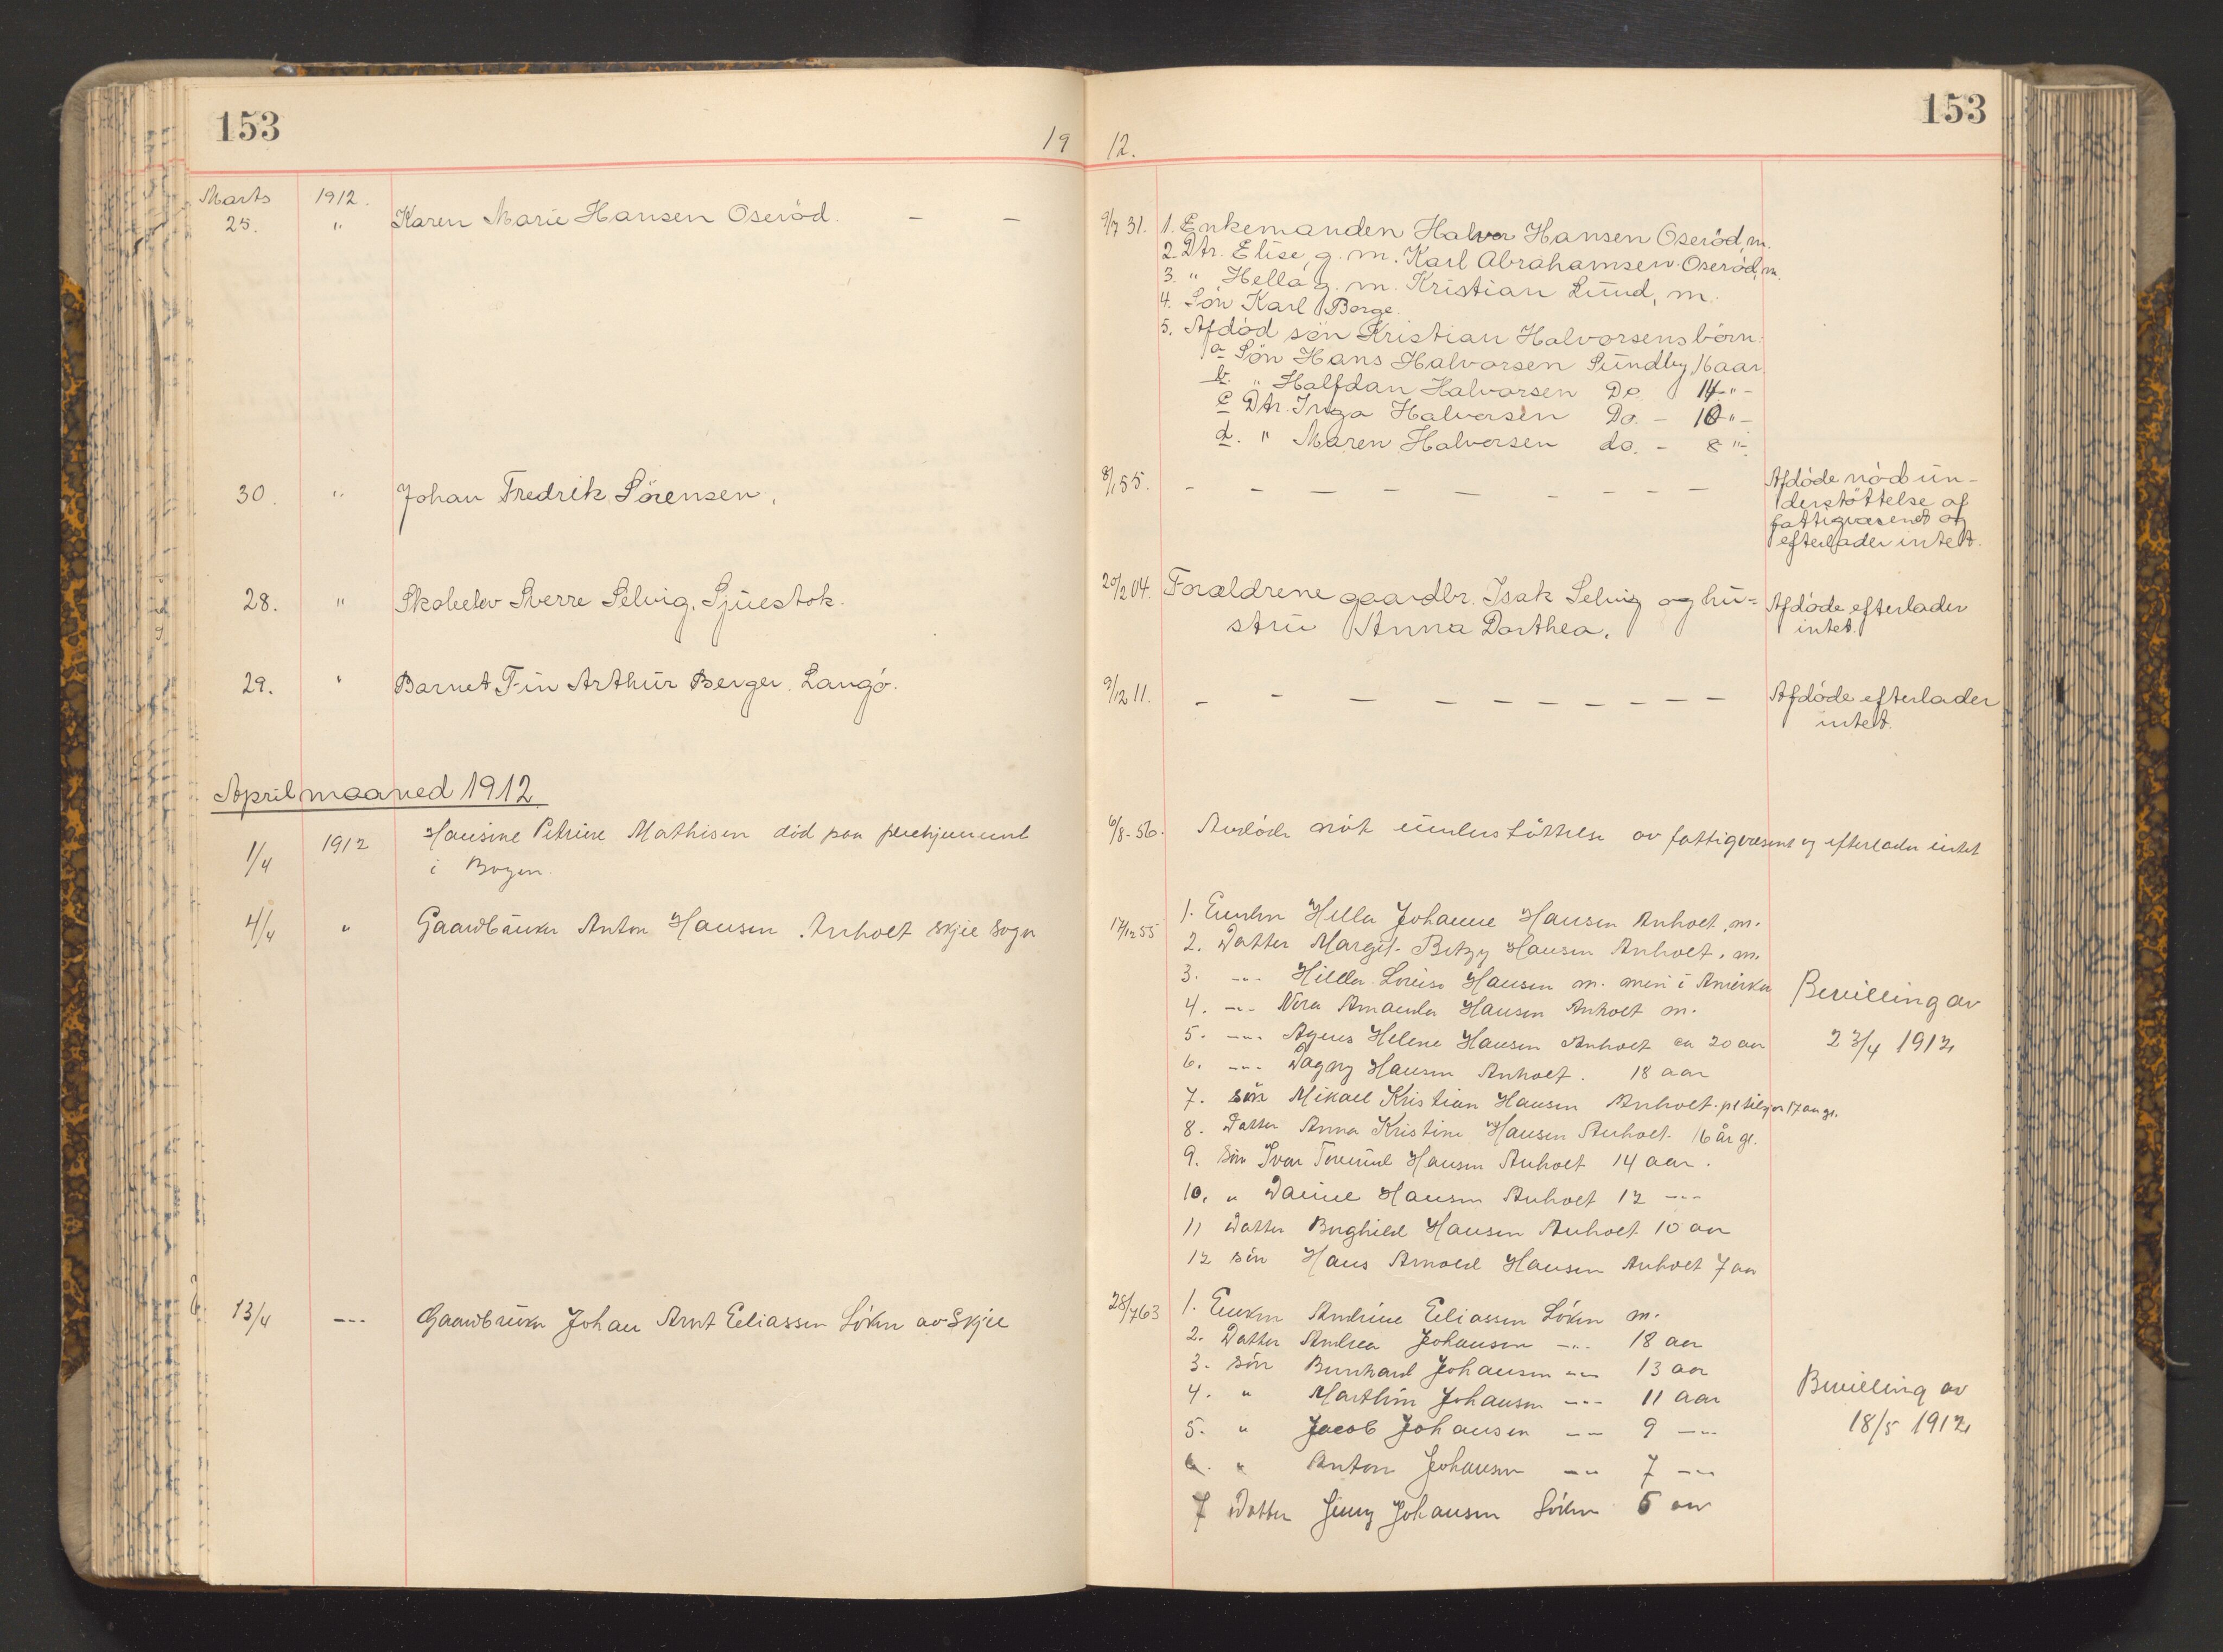 153
153
19 12.
Marts 1912.
25. " Karen Marie Hansen Oseröd. - -
9/7 31. 1. Enkemanden Halvor Hansen Oseröd, m.
2. Dtr. Elise, g. m. Karl Abrahamsen Oseröd, m.
3. " Hella g. m. Kristian Lund, m.
4. Sön Karl Borge.
5. Afdöd sön Kristian Halvorsens börn:
a Sön Hans Halvorsen Sundby, 16 aar.
b. " Halfdan Halvorsen Do. 14 " -
c Dtr. Inga Halvorsen Do. - 10 " -
d. " Maren Halvorsen do. - 8 " -
30. " Johan Fredrik Sörensen.
8/1 55. - - - - - - - - -
Afdöde nöd un-
derstöttelse af
fattigvæsenet og
efterlader intet.
28. " Skoleelev Sverre Selvig, Sjuestok.
20/2 04. Forældrene gaardbr. Isak Selvig og hu-
stru Anna Dorthea.
Afdöde efterlader
intet.
29. " Barnet Fin Arthur Berger. Langö.
9/12 11. - - - - - - - - -
Afdöde efterlader
intet.
April maaned 1912
1/4 1912 Hansine Petrine Mathisen död paa pleiehjemmet
i Bogen.
6/8-56. Avdöde nöt understöttelse av fattigvæsenet og efterlader intet
4/4 " Gaardbruker Anton Hansen Anholt Skjee Sogn
17/12 55 1. Enken Hella Johanne Hansen Anholt, m.
2. Datter Margit Betzy Hansen Anholt, m.
3. -"- Hilda Lovise Hansen m. men i Amerika
4. -"- Nora Amanda Hansen Anholt m.
5. -"- Agnes Helene Hansen Anholt ca 20 aar
6. -"- Dagny Hansen Anholt. 18 aar
7. sön Mikael Kristian Hansen Anholt. 17 aar gl.
8. Datter Anna Kristine Hansen Anholt 16 år gl.
9. Sön Ivar Hansen Anholt 14 aar.
10. " Daniel Hansen Anholt 12 -"-
11 Datter Borghild Hansen Anholt 10 aar
12 sön Hans Arnold Hansen Anholt 7 aar
Bevilling av
23/4 1912
13/4 -"- Gaardbruker Johan Arnt Eliassen Löken av Skjee
28/7 63 1. Enken Andrine Eliassen Löken m.
2. Datter Andrea Johansen -"- 18 aar
3. sön Bernhard Johansen -"- 13 aar
4. " Marthin Johansen -"- 11 aar
5. " Jacob Johansen -"- 9 -"-
6. " Anton Johansen -"- 7 -"-
7 Datter Jenny Johansen Löken 5 aar
Bevilling av
18/5 1912